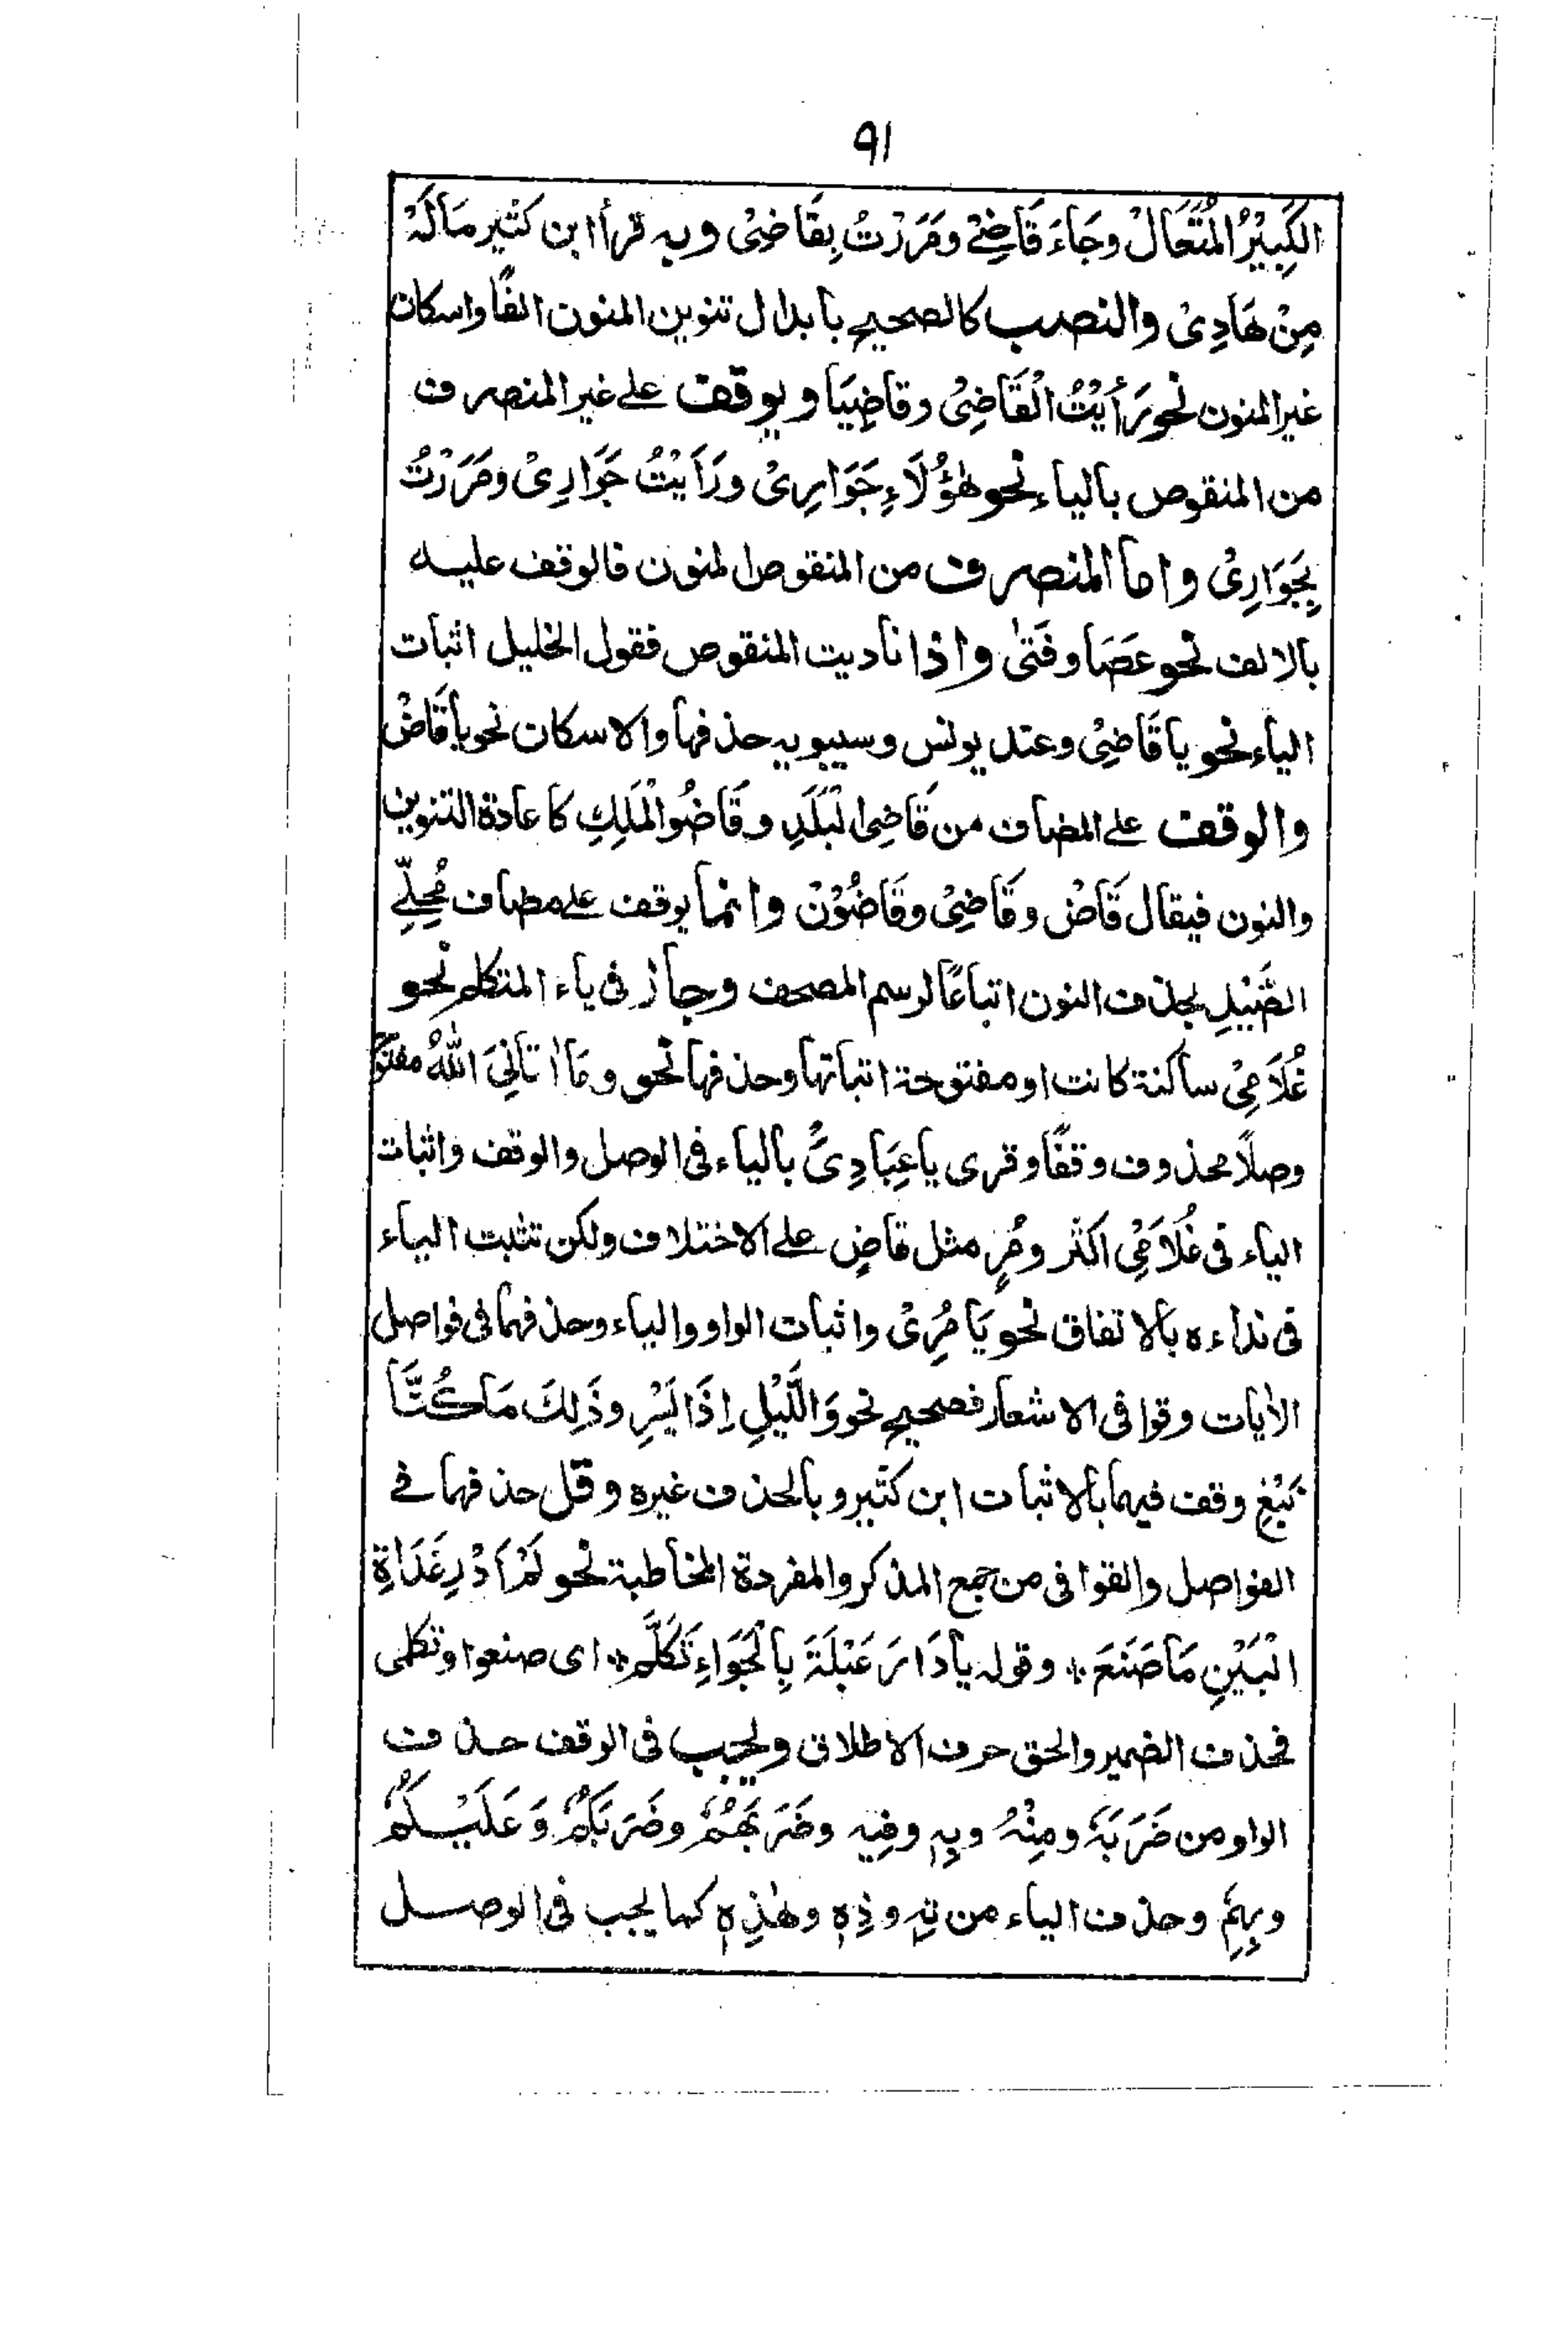 ۹۱
الكَبِيْرُ المُتَعَالْ وجَاءَ قَاضِيْ ومَرَرْتُ بِقَاضِىْ وبه قرأ ابن كثير مَالَهُ
مِنْ هَادِىْ والنصب كالصحيح بابدال تنوين المنون الفًا واسكان
غير المنون نحو رَأَيْتُ الْقَاضِىْ وقاضِيَا ويوقف على غير المنصرف
من المنقوص بالياء نحو هٰؤُلَاءِ جَوَارِىْ ورَاَيْتُ جَوَارِىْ ومَرَرْتُ
بِجَوَارِىْ واما المنصرف من المنقوص المنون فالوقف عليه
بالالف نحو عَصَا وفَتىٰ واذا ناديت المنقوص فقول الخليل اثبات
الياء نحو يا قَاضِىْ وعند يونس وسيبويه حذفها والاسكان نحو يا قَاضْ
والوقف على المضاف من قَاضِى الْبَلَدِ وقَاضُو الْمَلِكِ كاعادة التنوين
والنون فيقال قَاضْ وقَاضِىْ وقَاضُوْنْ وانما يوقف على مضاف مُحِلِّى
الصَّيْدِ بحذف النون اتباعًا لرسم المصحف وجاز فى ياء المتكلم نحو
غُلَامِىْ ساكنة كانت او مفتوحة اثباتها وحذفها نحو ومَا اٰتَانِىَ اللهُ مفتوح
وصلًا محذوف وقفًا وقرى يا عِبَادِىَْ بالياء فى الوصل والوقف واثبات
الياء فى غُلَامِىْ اكثر ومُرٍ مثل قاضٍ على الاختلاف ولكن تثبت الياء
فى نداءه بالاتفاق نحو يَا مُرِىْ واثبات الواو والياء وحذفهما فى فواصل
الاٰيات وقوافى الاشعار فصحيح نحو وَالَّيْلِ اِذَا يَسْرِ وذٰلِكَ مَا كُنَّا
نَبْغِ وقف فيهما بالاثبات ابن كثير وبالحذف غيره وقل حذفهما فى
الفواصل والقوافى من جمع المذكر والمفردة المخاطبة نحو لَمْ اَدْرِ غَدَاةِ
الْبَيْنِ مَا صَنَعَ * وقوله يا دَارَ عَبْلَةَ بِالْجَوَاءِ تَكَلَّمِ * اى صنعوا وتكلمى
فحذف الضمير والحق حرف الاطلاق ويجب فى الوقف حذف
الواو من ضَرَبَهٗ ومِنْهُ وبِهٖ وفِيه وضَرَبَهُمْ وضَرَبَكُمْ وَعَلَيْكُمْ
وبِهِمْ وحذف الياء من تِهٖ وذِهٖ وهٰذِهٖ كما يجب فى الوصل